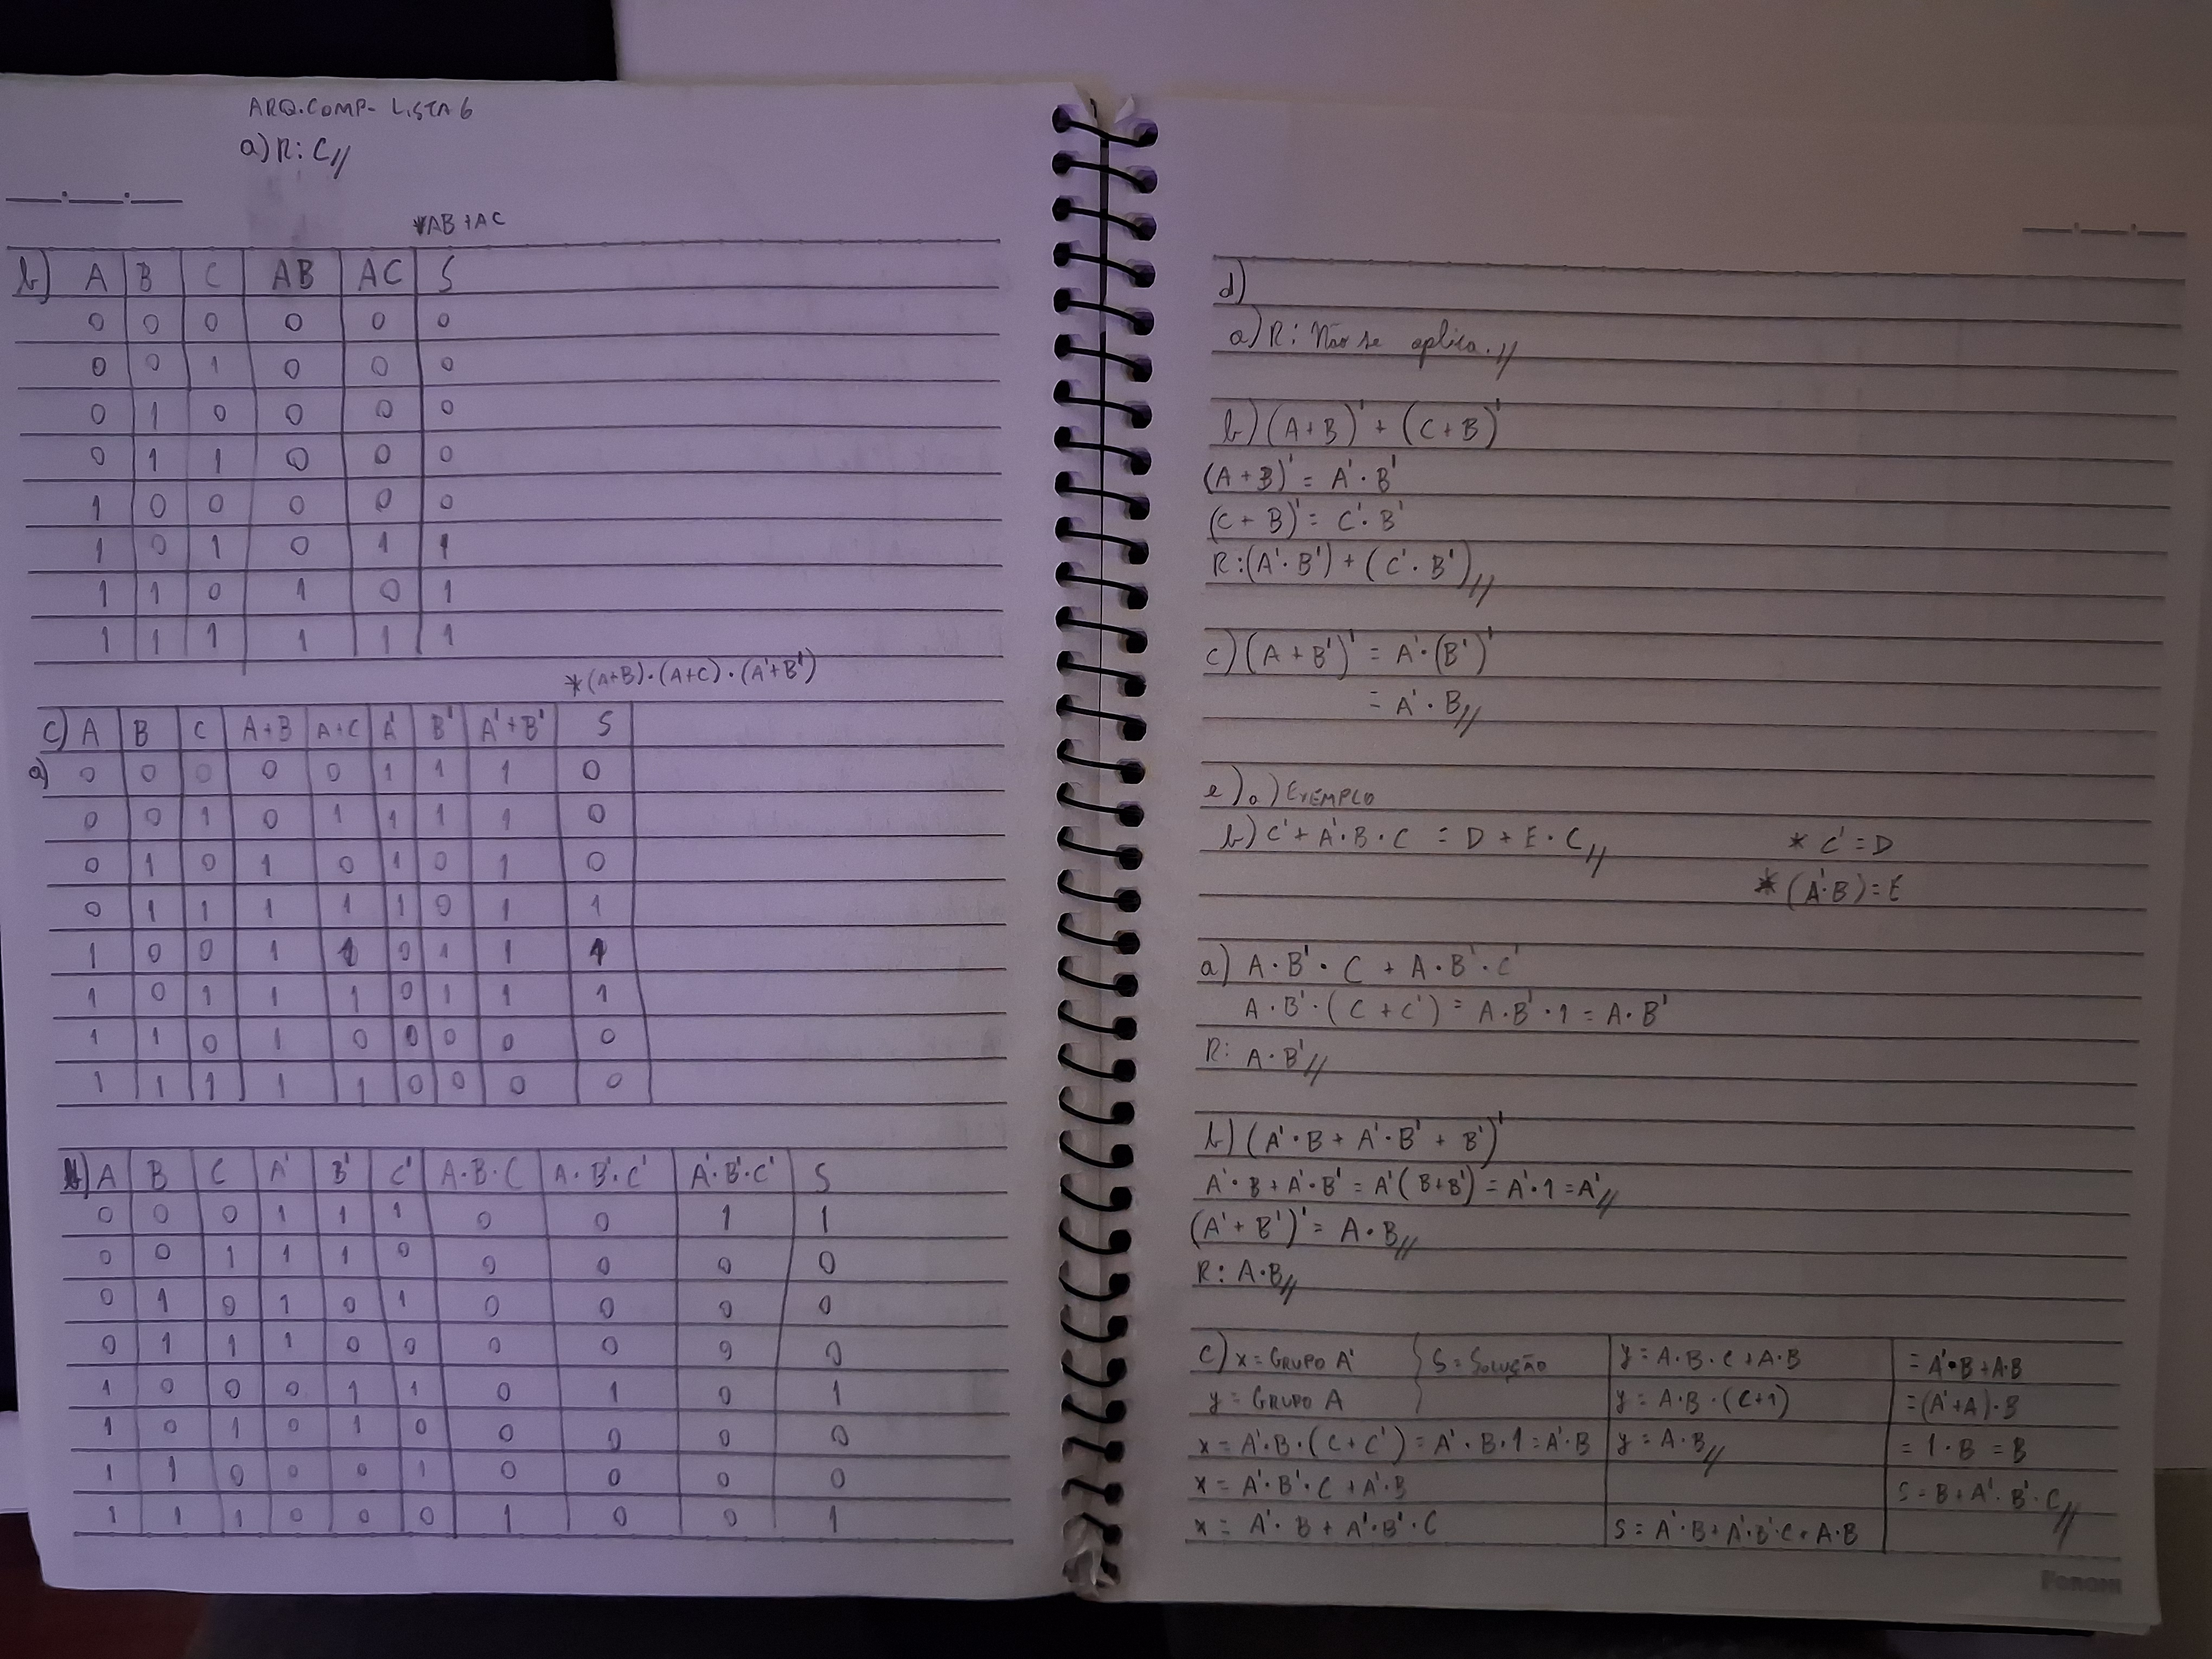 ARQ. COMP - LISTA 6
a) R: C//
*AB+AC
b) A B C AB AC S
0 0 0 0 0 0
0 0 1 0 0 0
0 1 0 0 0 0
0 1 1 0 0 0
1 0 0 0 0 0
1 0 1 0 1 1
1 1 0 1 0 1
1 1 1 1 1 1
*(A+B)·(A+C)·(A'+B')
c) A B C A+B A+C A' B' A'+B' S
a) 0 0 0 0 0 1 1 1 0
0 0 1 0 1 1 1 1 0
0 1 0 1 0 1 0 1 0
0 1 1 1 1 1 0 1 1
1 0 0 1 1 0 1 1 1
1 0 1 1 1 0 1 1 1
1 1 0 1 0 0 0 0 0
1 1 1 1 1 0 0 0 0
b) A B C A' B' C' A·B·C A·B'·C' A'·B'·C' S
0 0 0 1 1 1 0 0 1 1
0 0 1 1 1 0 0 0 0 0
0 1 0 1 0 1 0 0 0 0
0 1 1 1 0 0 0 0 0 0
1 0 0 0 1 1 0 1 0 1
1 0 1 0 1 0 0 0 0 0
1 1 0 0 0 1 0 0 0 0
1 1 1 0 0 0 1 0 0 1
d)
a) R: Não se aplica.//
b) (A+B)' + (C+B)'
(A+B)' = A'·B'
(C+B)' = C'·B'
R: (A'·B') + (C'·B')//
c) (A+B')' = A'·(B')'
= A'·B//
e) a) EXEMPLO
b) C' + A'·B·C = D + E·C// * C' = D
* (A'·B) = E
a) A·B'·C + A·B'·C'
A·B'·(C + C') = A·B'·1 = A·B'
R: A·B'//
b) (A'·B + A'·B' + B')'
A'·B + A'·B' = A'(B+B') = A'·1 = A'//
(A' + B')' = A·B//
R: A·B//
c) x = GRUPO A' { S = SOLUÇÃO y = A·B·C + A·B = A'·B + A·B
y = GRUPO A y = A·B·(C+1) = (A'+A)·B
x = A'·B·(C+C') = A'·B·1 = A'·B y = A·B// = 1·B = B
x = A'·B'·C + A'·B S = B + A'·B'·C//
x = A'·B + A'·B'·C S = A'·B + A'·B'·C + A·B
Foroni